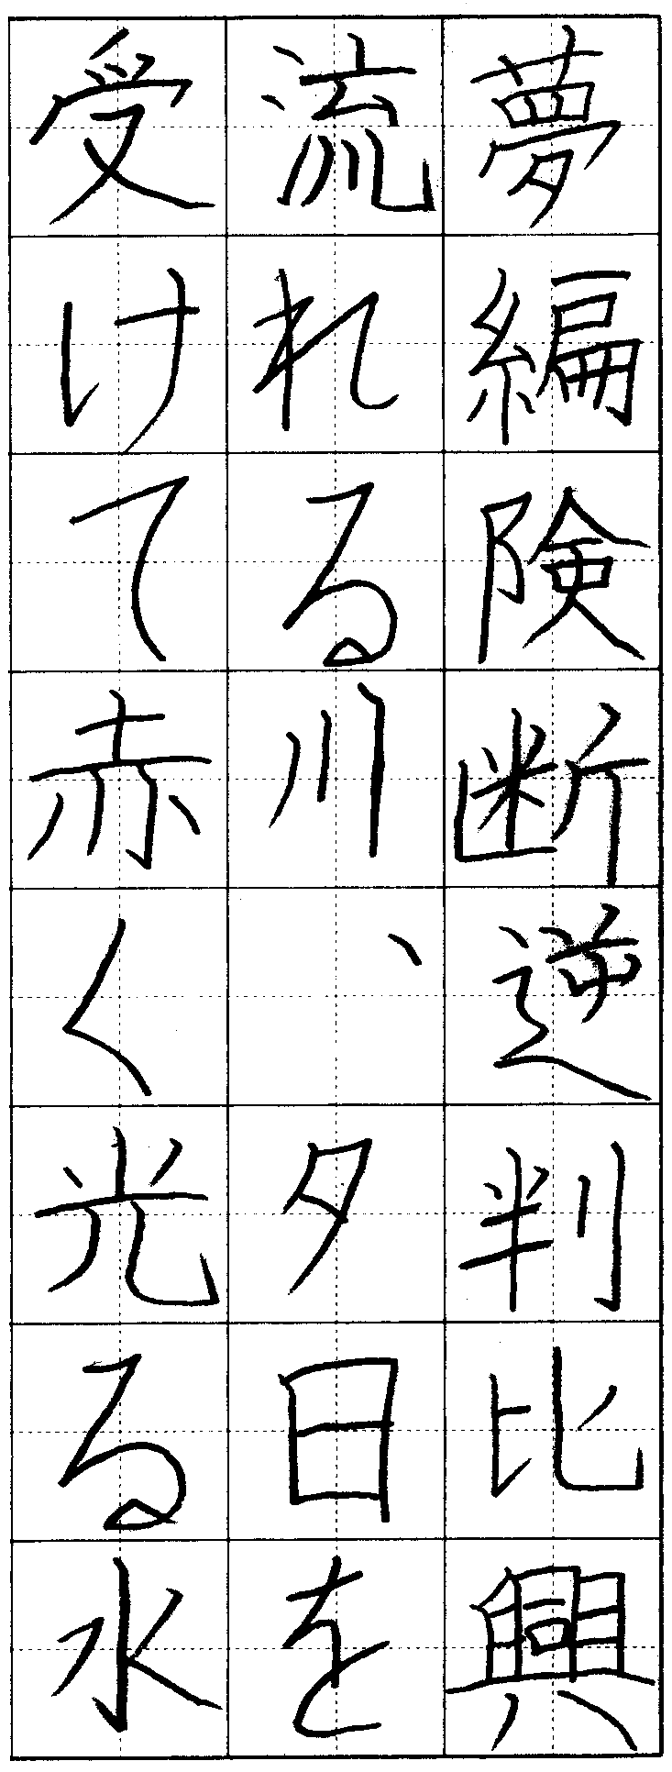 夢編険断逆判比興
流れる川、夕日を
受けて赤く光る水